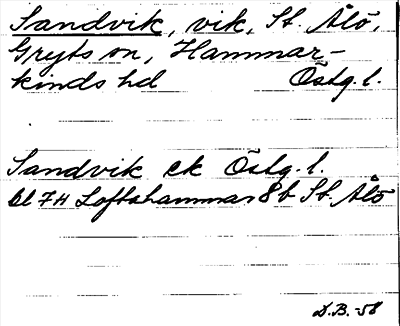 Sandvik, vik, St. Ålö,
Gryts sn, Hammar-
kinds hd Östg. l.
Sandvik ek Östg. l.
bl 7H Loftahammar 8b St. Ålö
D.B. -58